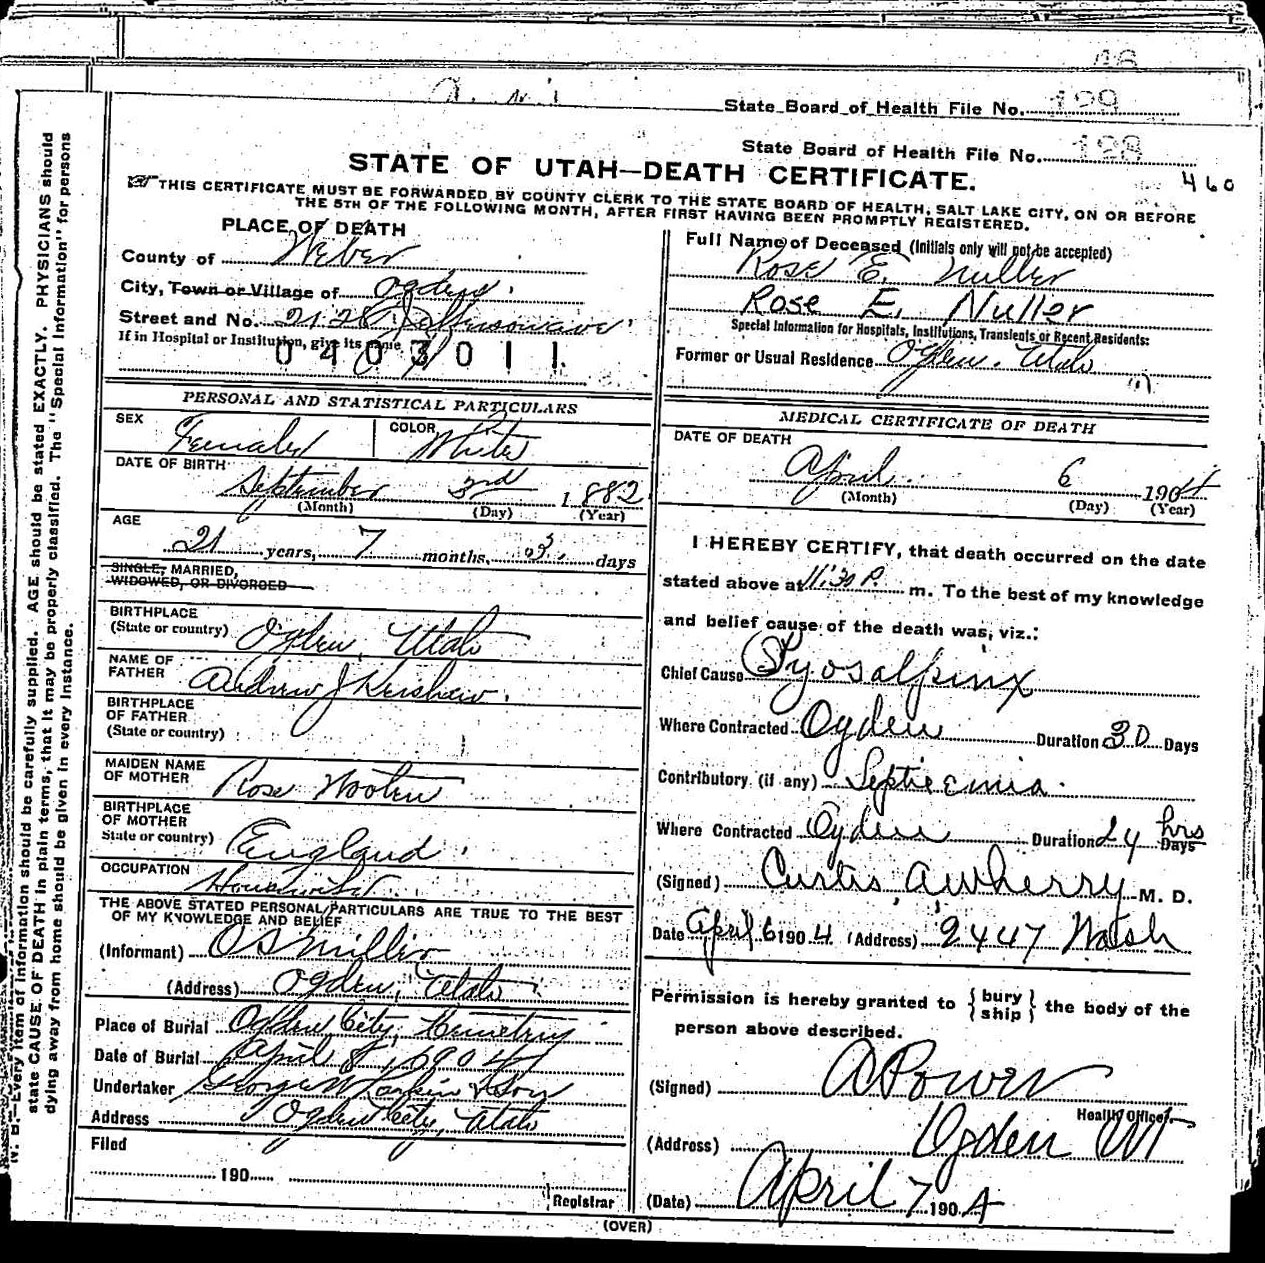 State Board of Health File No. 129
State Board of Health File No. 128
460
STATE OF UTAH—DEATH CERTIFICATE.
THIS CERTIFICATE MUST BE FORWARDED BY COUNTY CLERK TO THE STATE BOARD OF HEALTH, SALT LAKE CITY, ON OR BEFORE
THE 5TH OF THE FOLLOWING MONTH, AFTER FIRST HAVING BEEN PROMPTLY REGISTERED.
PLACE OF DEATH
County of Weber
City, Town or Village of Ogden.
Street and No. 2128 Jefferson ave
If in Hospital or Institution, give its name
0403011
Full Name of Deceased (Initials only will not be accepted)
Rose E. Nuller
Rose E. Nuller
Special Information for Hospitals, Institutions, Transients or Recent Residents:
Former or Usual Residence Ogden. Utah
PERSONAL AND STATISTICAL PARTICULARS
SEX Female
COLOR White
DATE OF BIRTH
September 3rd 1882
(Month) (Day) (Year)
AGE
21 years, 7 months, 3 days
SINGLE, MARRIED,
WIDOWED, OR DIVORCED
BIRTHPLACE
(State or country) Ogden, Utah
NAME OF
FATHER Andrew J Kershaw.
BIRTHPLACE
OF FATHER
(State or country)
MAIDEN NAME
OF MOTHER Rose Wooten
BIRTHPLACE
OF MOTHER
State or country) England.
OCCUPATION Housewife
THE ABOVE STATED PERSONAL PARTICULARS ARE TRUE TO THE BEST
OF MY KNOWLEDGE AND BELIEF
(Informant) O S Miller
(Address) Ogden, Utah
Place of Burial Ogden City, Cemetery
Date of Burial April 8, 1904
Undertaker George W Larkin & Son
Address Ogden City, Utah
Filed
190
Registrar
MEDICAL CERTIFICATE OF DEATH
DATE OF DEATH
April 6 1904
(Month) (Day) (Year)
I HEREBY CERTIFY, that death occurred on the date
stated above at 11:30 P. m. To the best of my knowledge
and belief cause of the death was, viz.:
Chief Cause Pyosalpinx
Where Contracted Ogden Duration 30 Days
Contributory (if any) Septicemia.
Where Contracted Ogden Duration 24 hrs Days
(Signed) Curtis Awherry M. D.
Date April 6 1904 (Address) 2447 Wash
Permission is hereby granted to {bury
ship} the body of the
person above described.
(Signed) A Power
Health Officer.
(Address) Ogden UT
(Date) April 7 1904
(OVER)
N. B.—Every item of information should be carefully supplied. AGE should be stated EXACTLY. PHYSICIANS should
state CAUSE OF DEATH in plain terms, that it may be properly classified. The "Special Information" for persons
dying away from home should be given in every instance.